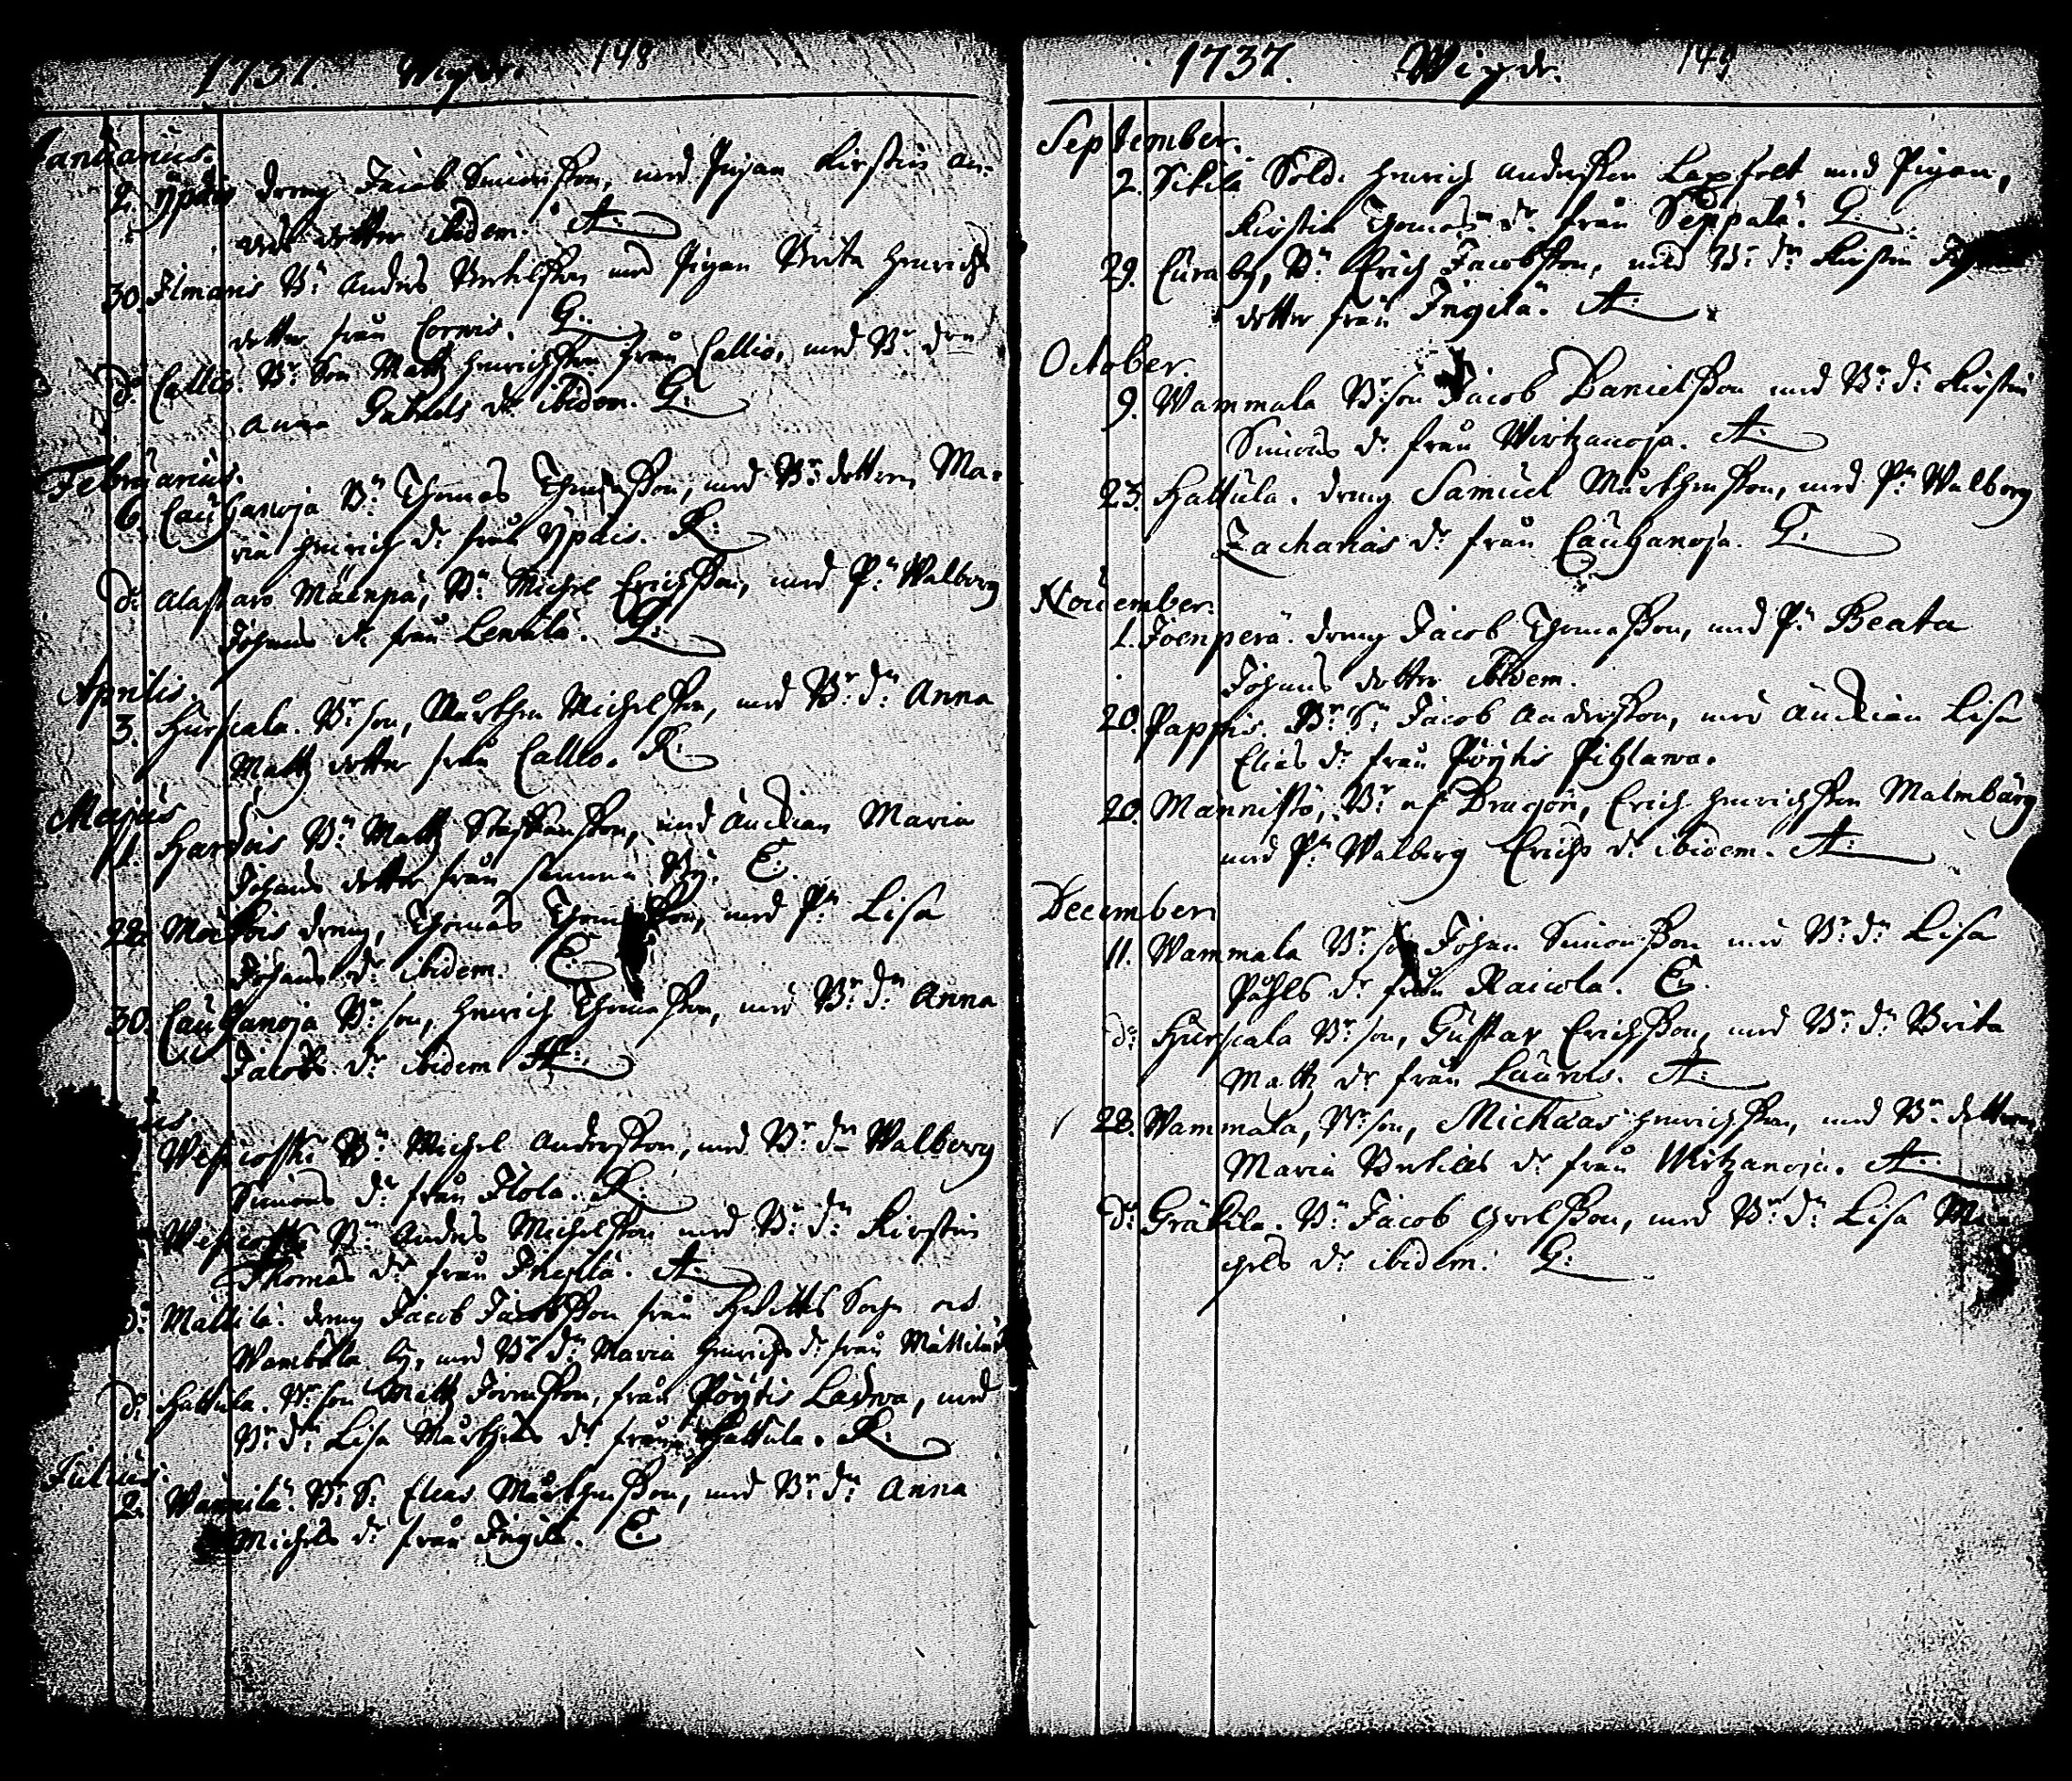 1737. Wigde. 148
Januarius.
2. Ypäis dreng Jacob Simonsson, med Pigan Kirstin An-
ders dotter ibidem. A:
30. Ilmaris Bn Anders Bertilsson med Pigan Brita Henrichs
dotter från Corwis. G:
do Callio. Br Son Matz Henrichsson från Callio, med Br drn
Anna Gabriels dr ibidem. G:
Februarius.
6. Cauhanoja Bn Thomas Thomasson, med Br dottren Ma-
ria Henrich dr från Ypäis. K:
do Alastaro Mäenpä, Bn Michel Erichsson, med Pn Walborg
Johans dr från Lewälä. G:
Aprilis.
3. Hurscala. Br son, Mårthen Michelsson, med Br dn Anna
Matz dotter från Callio. K:
Majus
1. Hardois Bn Matz Staffansson, med Änckian Maria
Johans dotter från samma By. E.
22. Mäckois dreng, Thomas Thomasson, med Pn Lisa
Johans dr ibidem. E:
30. Cauhanoja Br son, Henrich Thomasson, med Br dn Anna
Jacobs dr ibidem A:
us.
Wescoski Bn Michel Andersson, med Br dn Walborg
Simons dr från Ilola. K:
Wescoski Bn Anders Michelsson med Br dn Kirstin
Thomas dr från Ingilä. A:
do Mattila. dreng Jacob Jacobsson från Hwittis Sochn och
Wambula by, med Br dn Maria Henrichs dr från Mattila
do Hattula. Br son Matz Jörensson, från Pöytis Ladwa, med
Br dn Lisa Mårthens dr från Hattula. K:
Julius.
2. Wännilä. Br S: Elias Mårthensson, med Br dn Anna
Michels dr från Ingilä. E:
1737. Wigde. 149
September.
2. Sikilä Sold. Henrich Andersson Laxfelt med Pigan,
Kirstin Thomas dr från Seppälä. G:
29. Curaby, Bn Erich Jacobsson, med Br dn Kirstin
dotter från Ingilä. A:
October.
9. Wammala Br son Jacob Danielsson med Br dn Kirstin
Simons dr från Wirtzanoja. A:
23. Hattula. dreng Samuel Mårthensson, med Pn Walborg
Zacharias dr från Cauhanoja. G:
November.
1. Joenperä. dreng Jacob Thomasson, med Pn Beata
Johans dotter ibidem.
20. Pappis. Br Sn Jacob Andersson, med Änckian Lisa
Elias dr från Pöytis Pihlawa.
20. Männistö, Br af Dragon, Erich Henrichsson Malmbärg
med Pn Walborg Erichs dr ibidem. A:
December
11. Wammala Br son Johan Simonsson med Br dn Lisa
Påhls dr från Raicola. E.
do Hurscala Br son, Gustav Erichsson, med Br dn Brita
Matz dr från Laurois. A:
28. Wammala, Br son, Michaas Henrichsson, med Br dottren
Maria Bertills dr från Wirtzanoja. A:
do Gräkila. Bn Jacob Grelsson, med Br dn Lisa Mi-
chels dr ibidem. G: